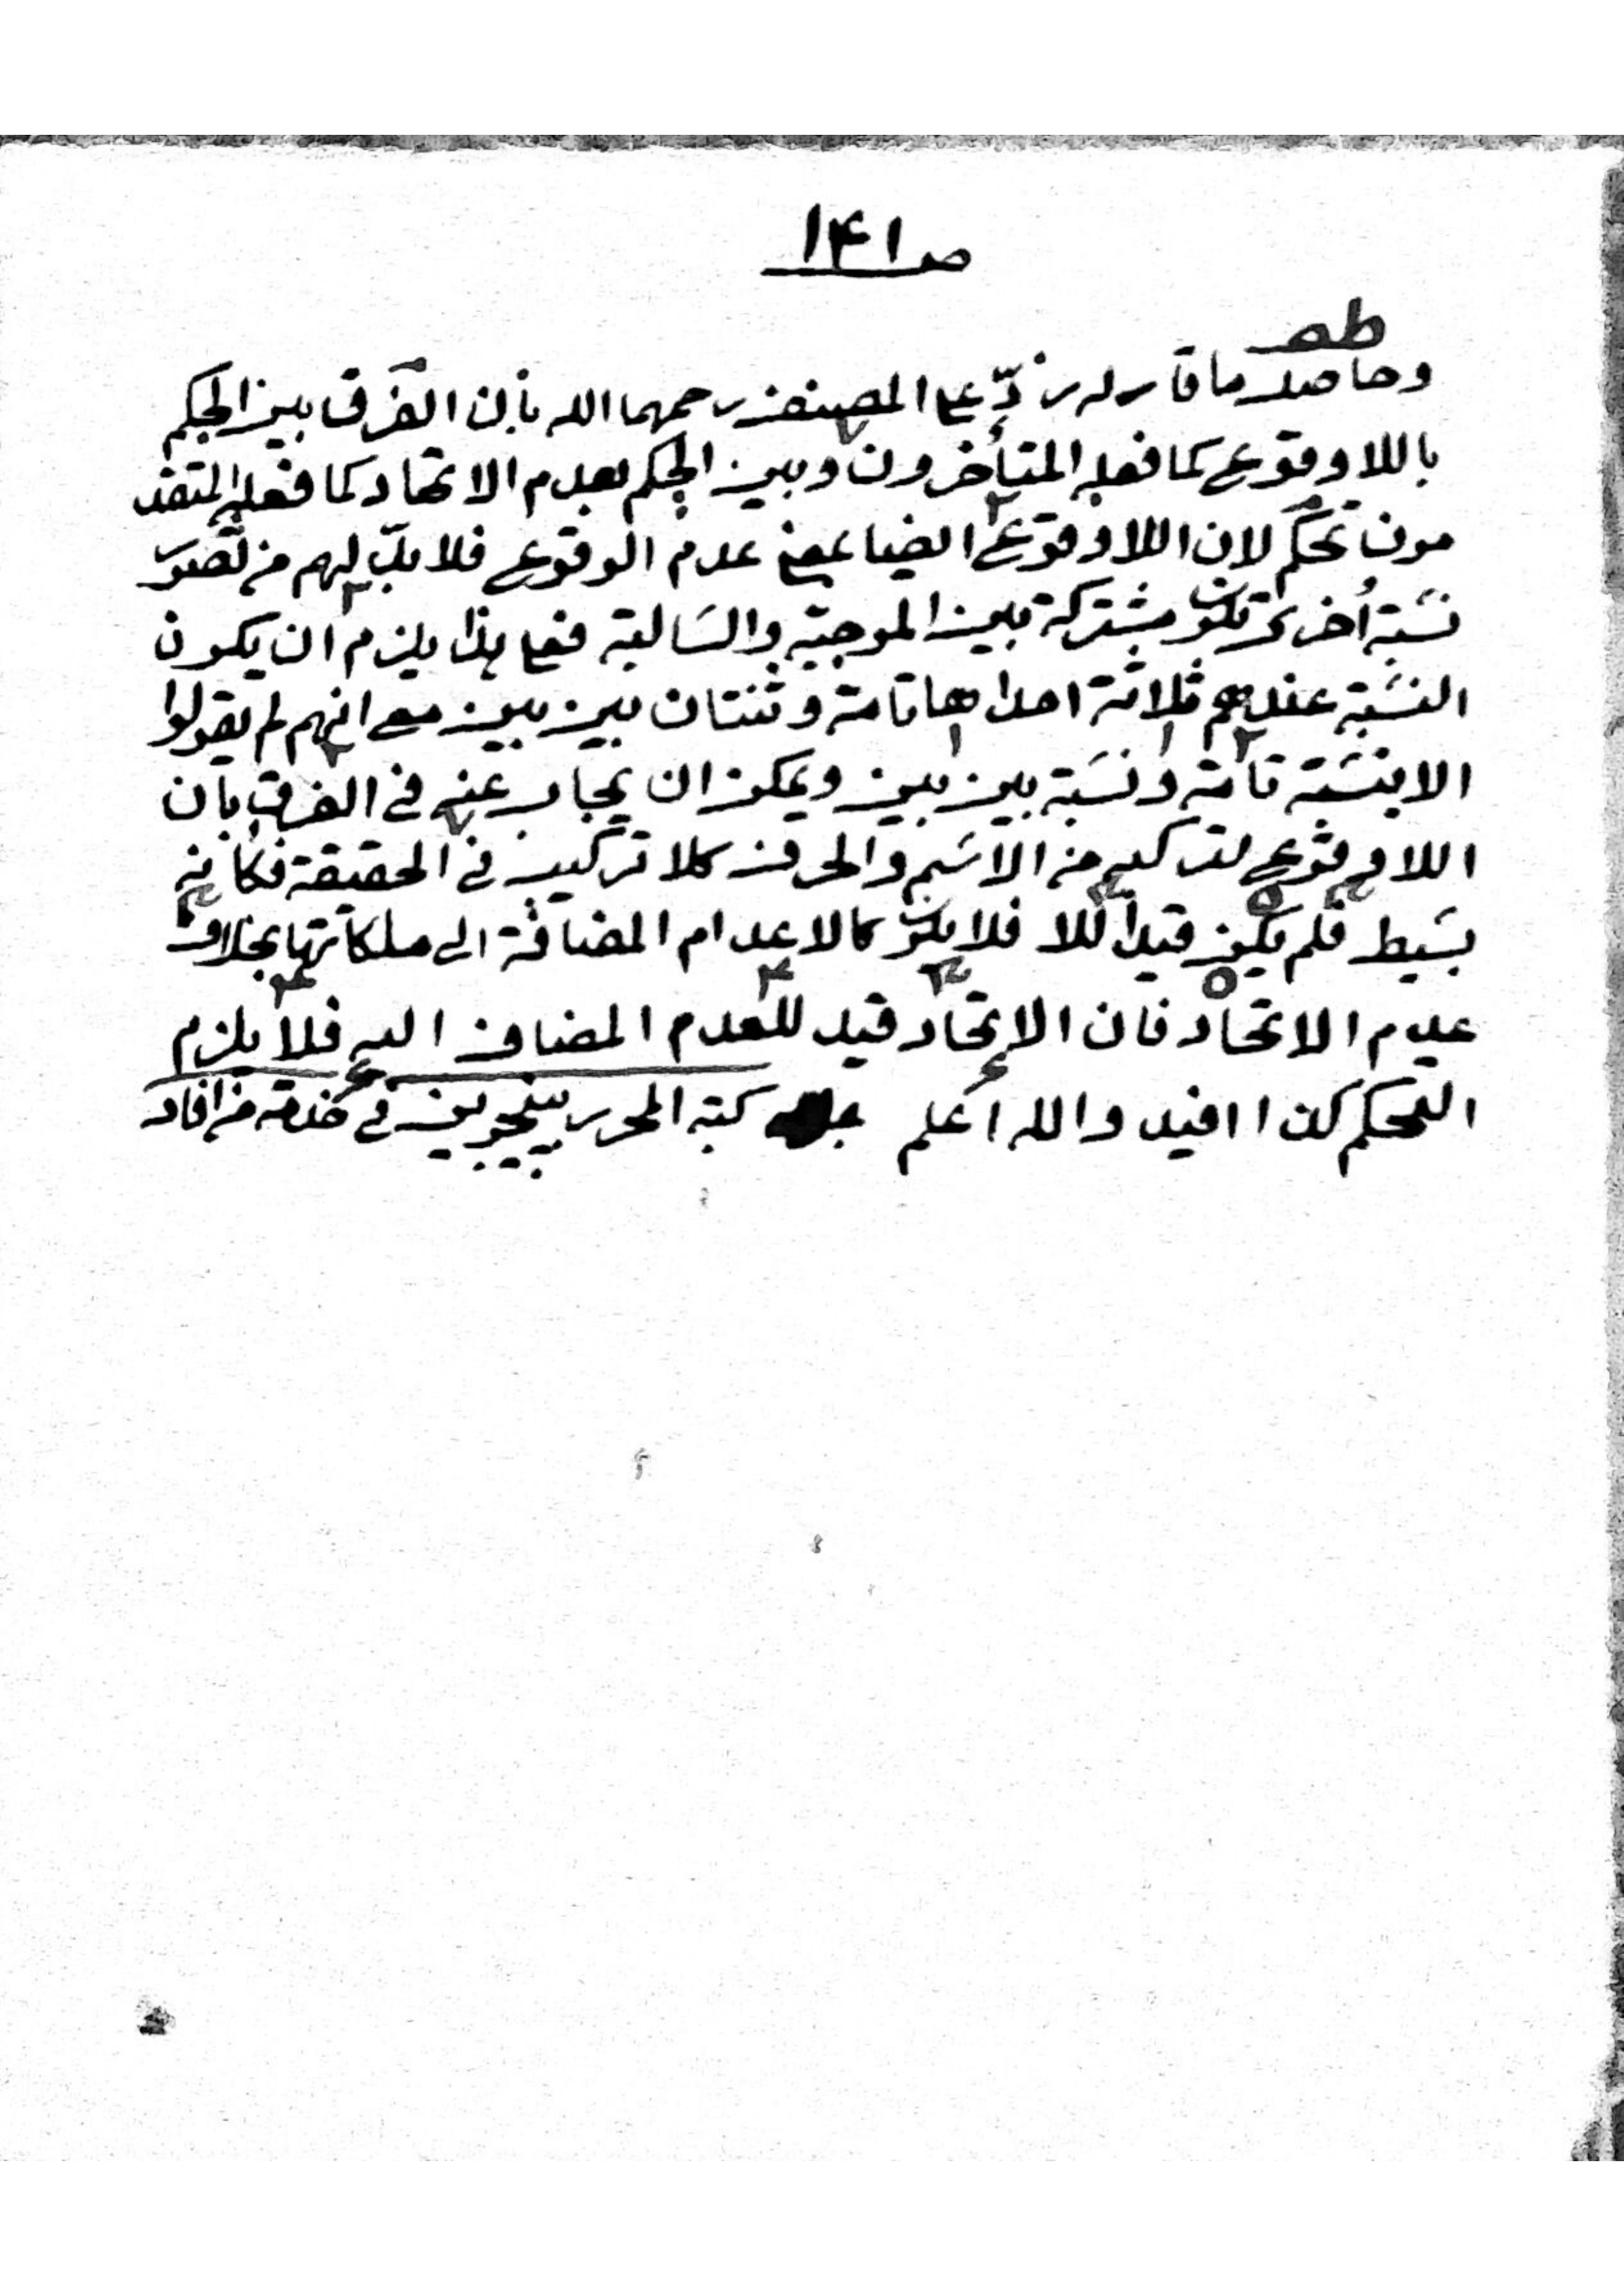 ص ١۴١
وحاصل ما قاله ردّ على المصنف رحمهما الله بأن الفرق بين الحكم
باللاوقوع كما فعله المتأخرون وبين الحكم بعدم الاتحاد كما فعله المتقد
مون تحكم لان اللاوقوع ايضا بمعنى عدم الوقوع فلا بدّ لهم من تصور
نسبة أخرى تكون مشتركة بين الموجبة والسالبة فعلى هذا يلزم ان يكون
النسبة عندهم ثلاثة احداها تامة وثنتان بين بين مع انهم لم يقولوا
الا بنسبة تامة ونسبة بين بين ويمكن ان يجاب عنه فى الفرق بان
اللاوقوع لتركبه من الاسم والحرف كلا تركيب فى الحقيقة فكأنه
بسيط فلم يكن قيدا للا فلا يكون كالاعدام المضافة الى ملكاتها بخلاف
عدم الاتحاد فان الاتحاد قيد للعدم المضاف اليه فلا يلزم
التحكم كذا افيد والله اعلم كتبه المحرر ببنجوين فى خدمة من افاد